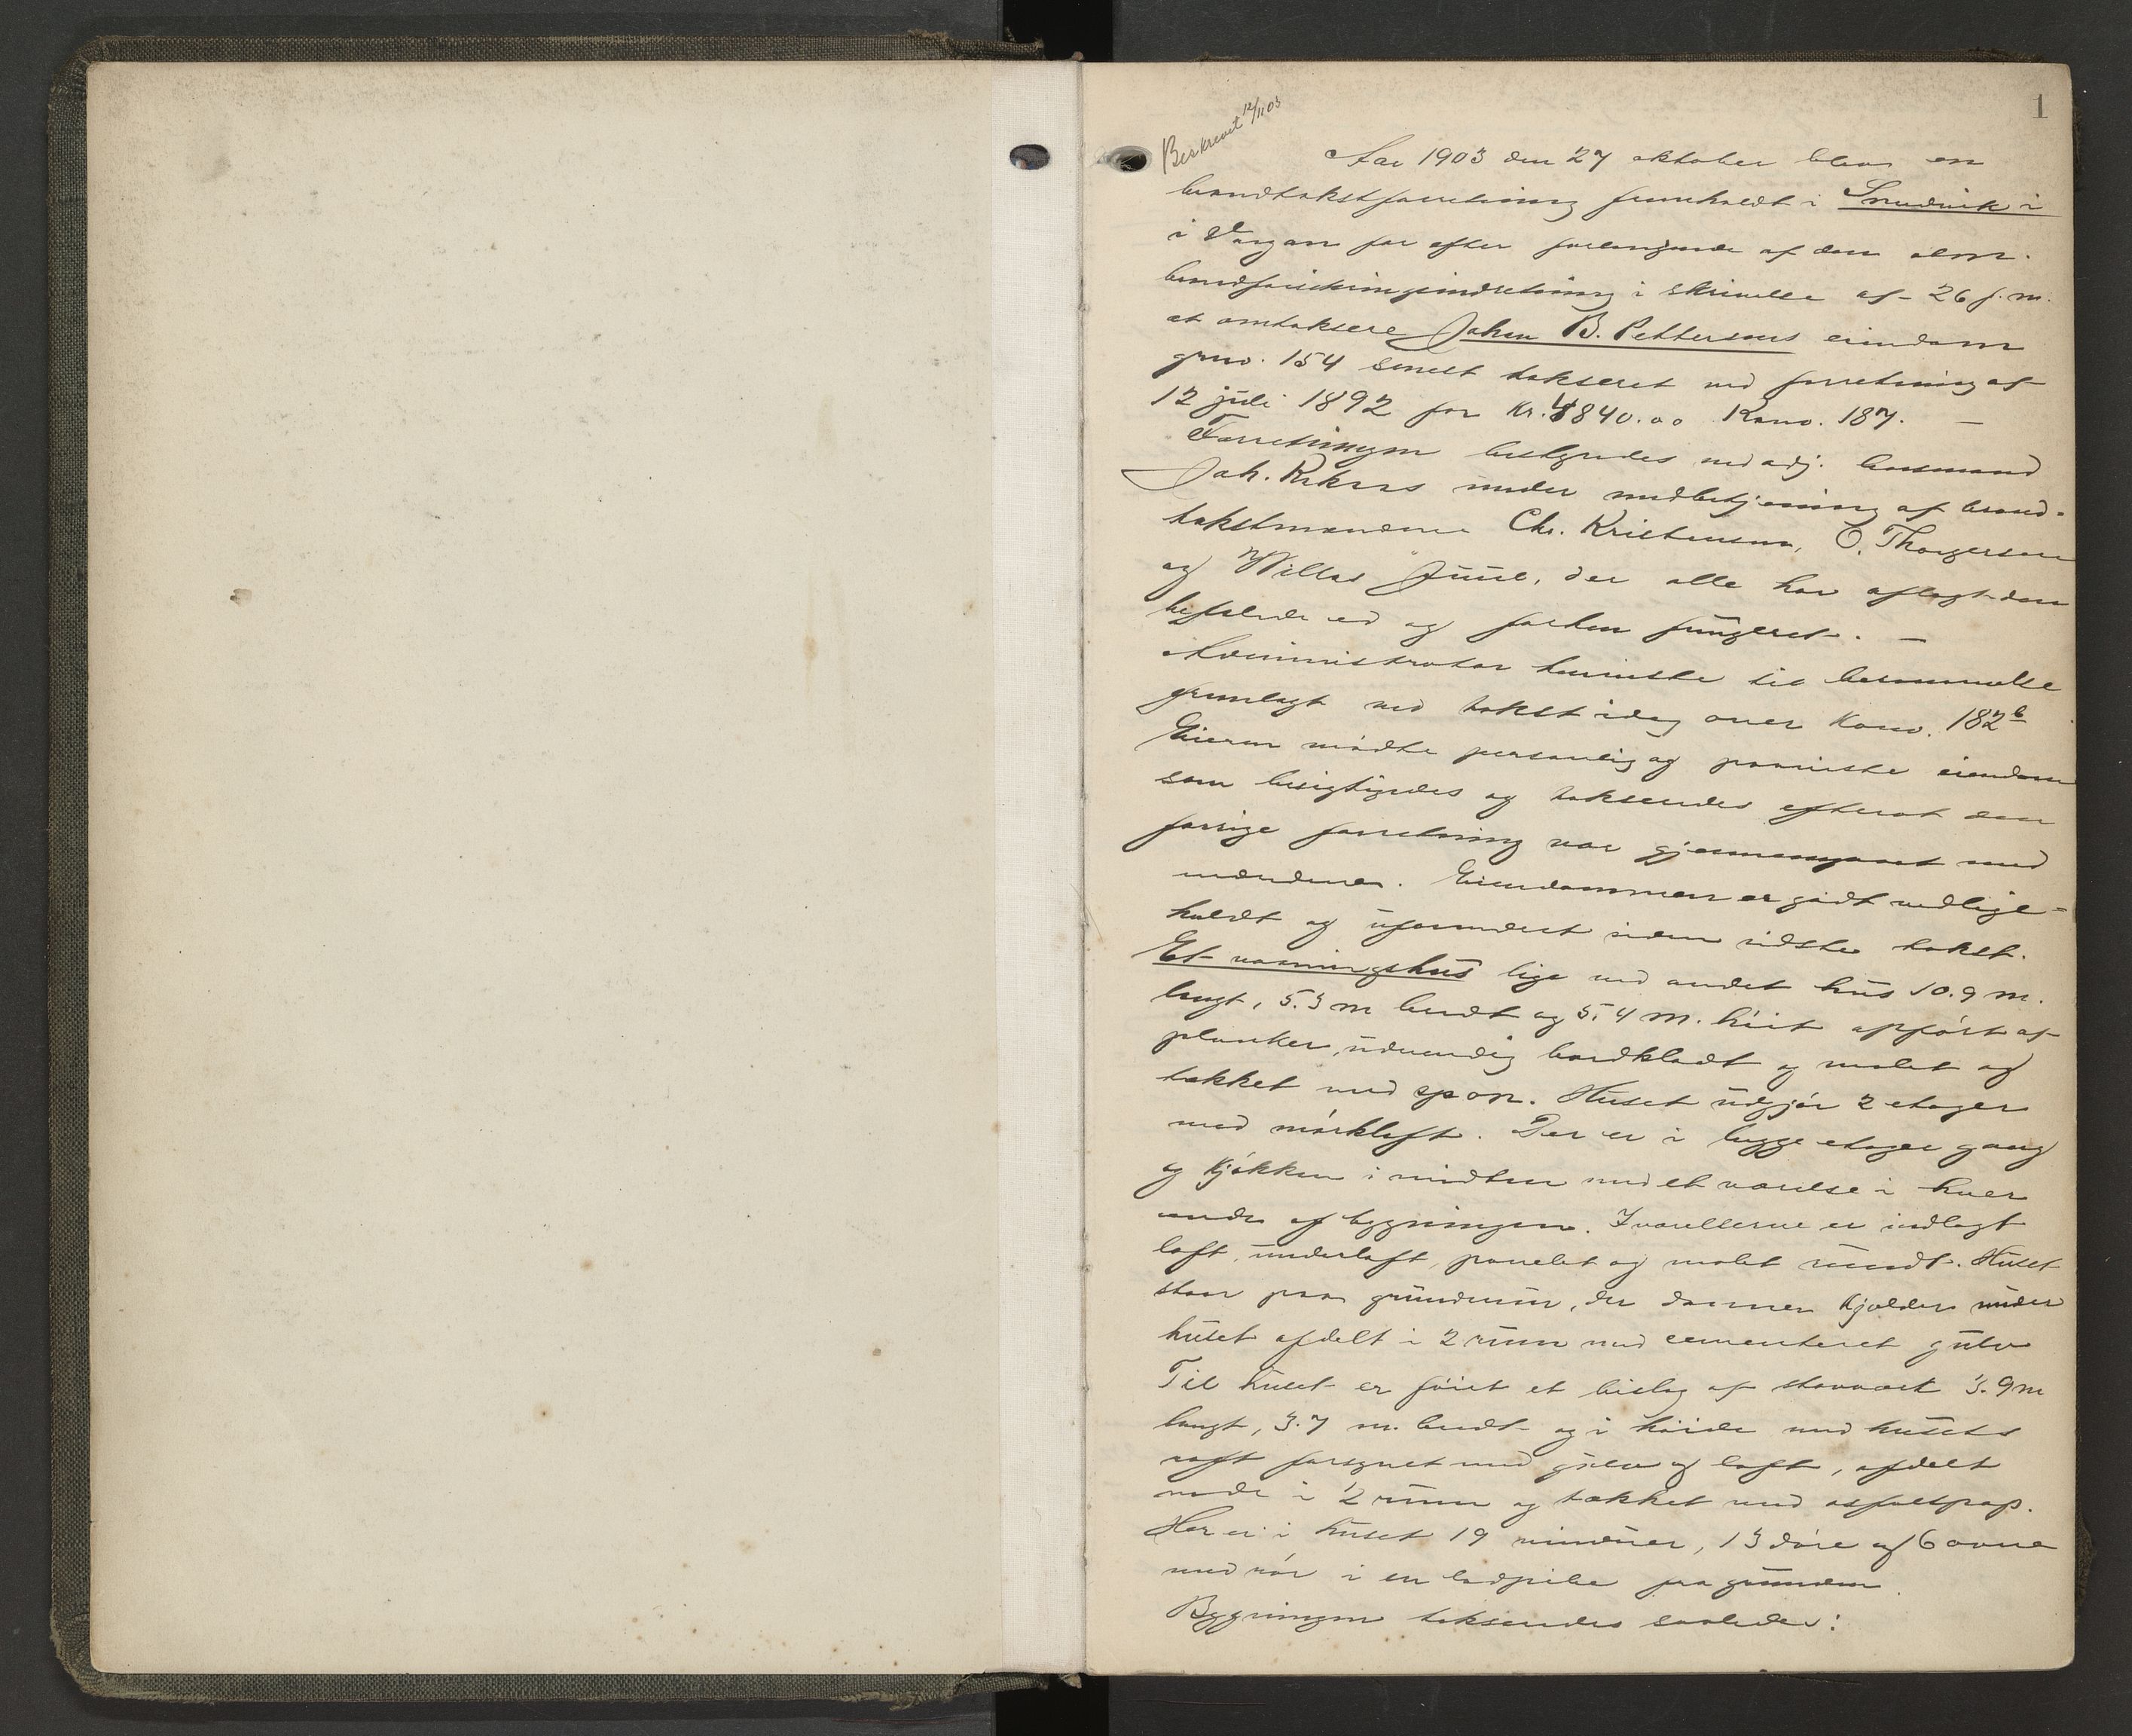 1
Beskrevet 12/11 03
Aar 1903 den 27 oktober blev en
brandtakstforretning fremholdt i Snudvik i
i Vaagan for efter forlangende af den alm.
brandforsikringsindretning i skrivelse af 26 f. m.
at omtaksere Johan B. Pettersens eiendom
grno. 154 senest takseret ved forretning af
12 juli 1892 for Kr. 4840.00 Kono. 187. —
Forretningen bestyredes ved adj. lensmand
Joh. under medbetjening af brand-
takstmændene Chr. Kristensen, O. Thorgersen
og Willas Juul, der alle har aflagt den
befalede ed og forhen fungeret. —
Administrator henviste til berammelse
fremlagt ved takst idag over Kono. 182 b
Eieren mødte personlig og paaviste eiendom
som besigtigedes og takseredes efterat den
forrige forretning var gjennemgaaet med
mændene. Eiendommen er godt vedlige-
holdt og uforandret siden sidste takst.
Et vaaningshus lige ved andet hus 10.9 m.
langt, 5.3 m bredt og 5.4 m. høit opført af
planker, udvendig bordklædt og malet og
tækket med spon. Huset udgjør 2 etager
med mørkloft. Der er i begge etager gang
og kjøkken i midten med et værelse i hver
ende af bygningen. I værelserne er indlagt
loft, underloft, panelet og malet rundt. Huset
staar paa grundmur, der danner kjælder under
huset afdelt i 2 rum med cementeret gulv
Til huset er føiet et bislag af stavværk 3.9 m
langt, 3.7 m. bredt og i høide med husets
raft forsynet med gulv og loft, afdelt
nede i 2 rum og tækket med asfaltpap.
Her er i huset 19 vinduer, 13 døre og 6 ovne
med rør i en lodpibe fra grunden.
Bygningen takseredes saaledes: